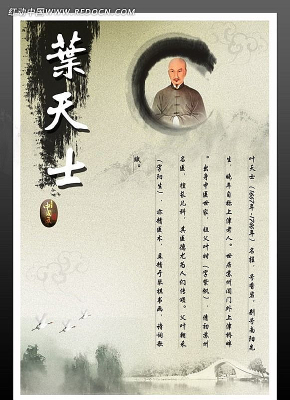 红动中国 WWW.REDOCN.COM
葉天士
叶天士（1667年-1746年）名桂，号香岩，别号南阳先
生，晚年自称上津老人。世居苏州阊门外上津桥畔
。出身中医世家，祖父叶时（字紫帆），清初苏州
名医，擅长儿科，其医德尤为人们传颂。父叶朝采
（字阳生），亦精医术，且精于琴棋书画，诗词歌
赋。